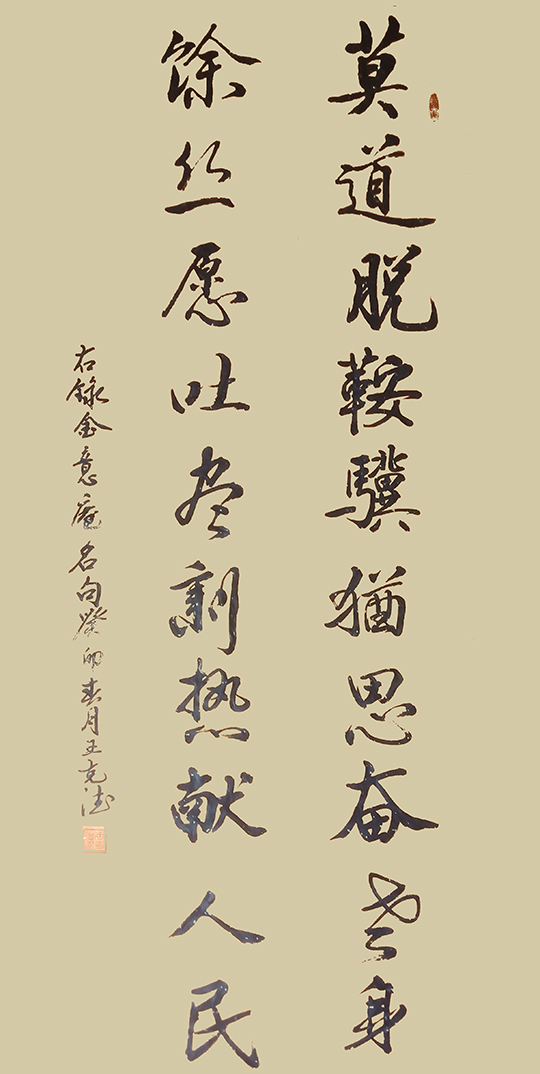 莫道脱鞍驥猶思奋老身
馀丝愿吐尽剩热献人民
右録金意庵名句癸卯春月王克